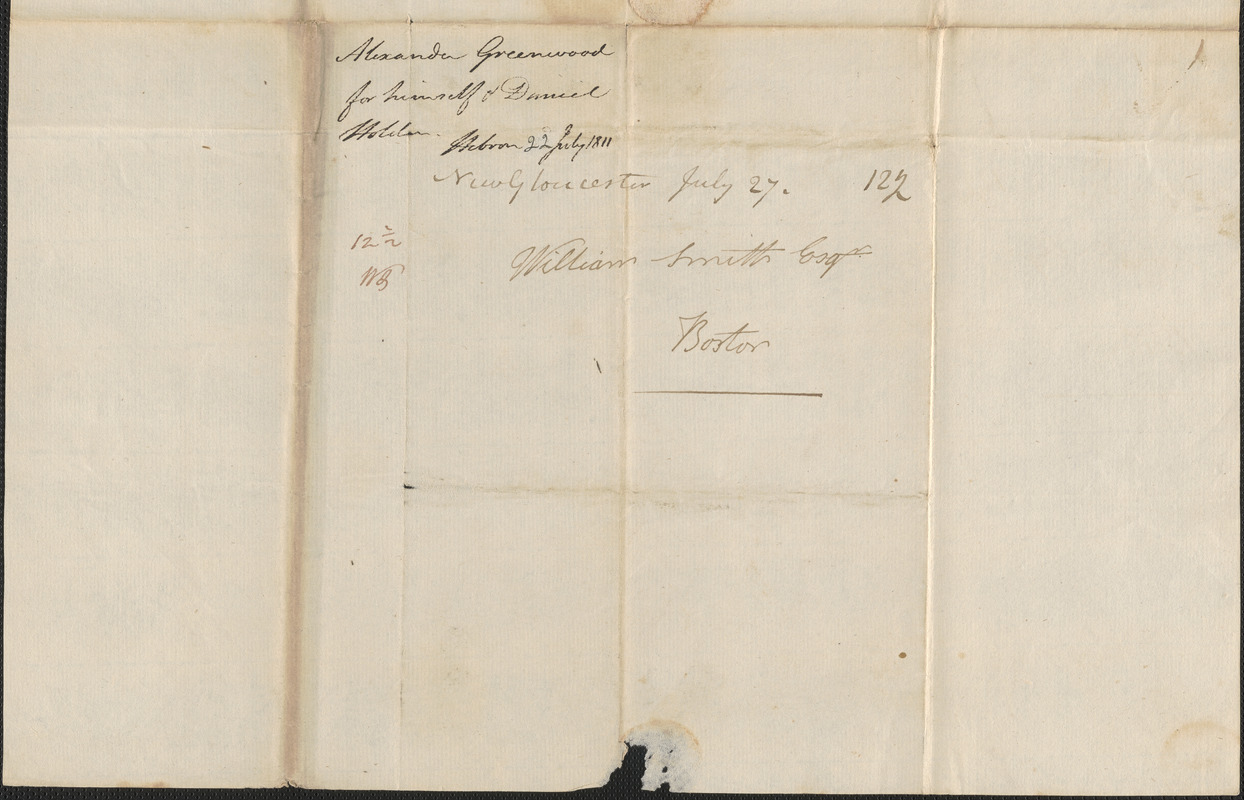 Alexander Greenwood
for himself & Daniel
Holden.
Hebron 22d July 1811
New Gloucester July 27. 12½
12½
William Smith Esqr.
Boston